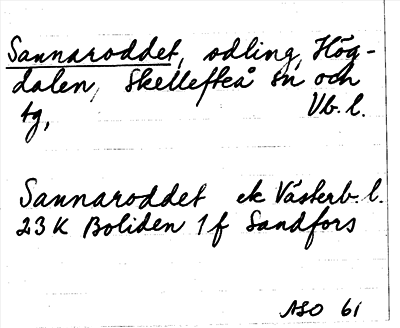 Sannaroddet, odling, Hög-
dalen, Skellefteå sn och
tg, Vb. l.
Sannaroddet ek Västerb. l.
23 K Boliden 1 f Sandfors
ASO 61